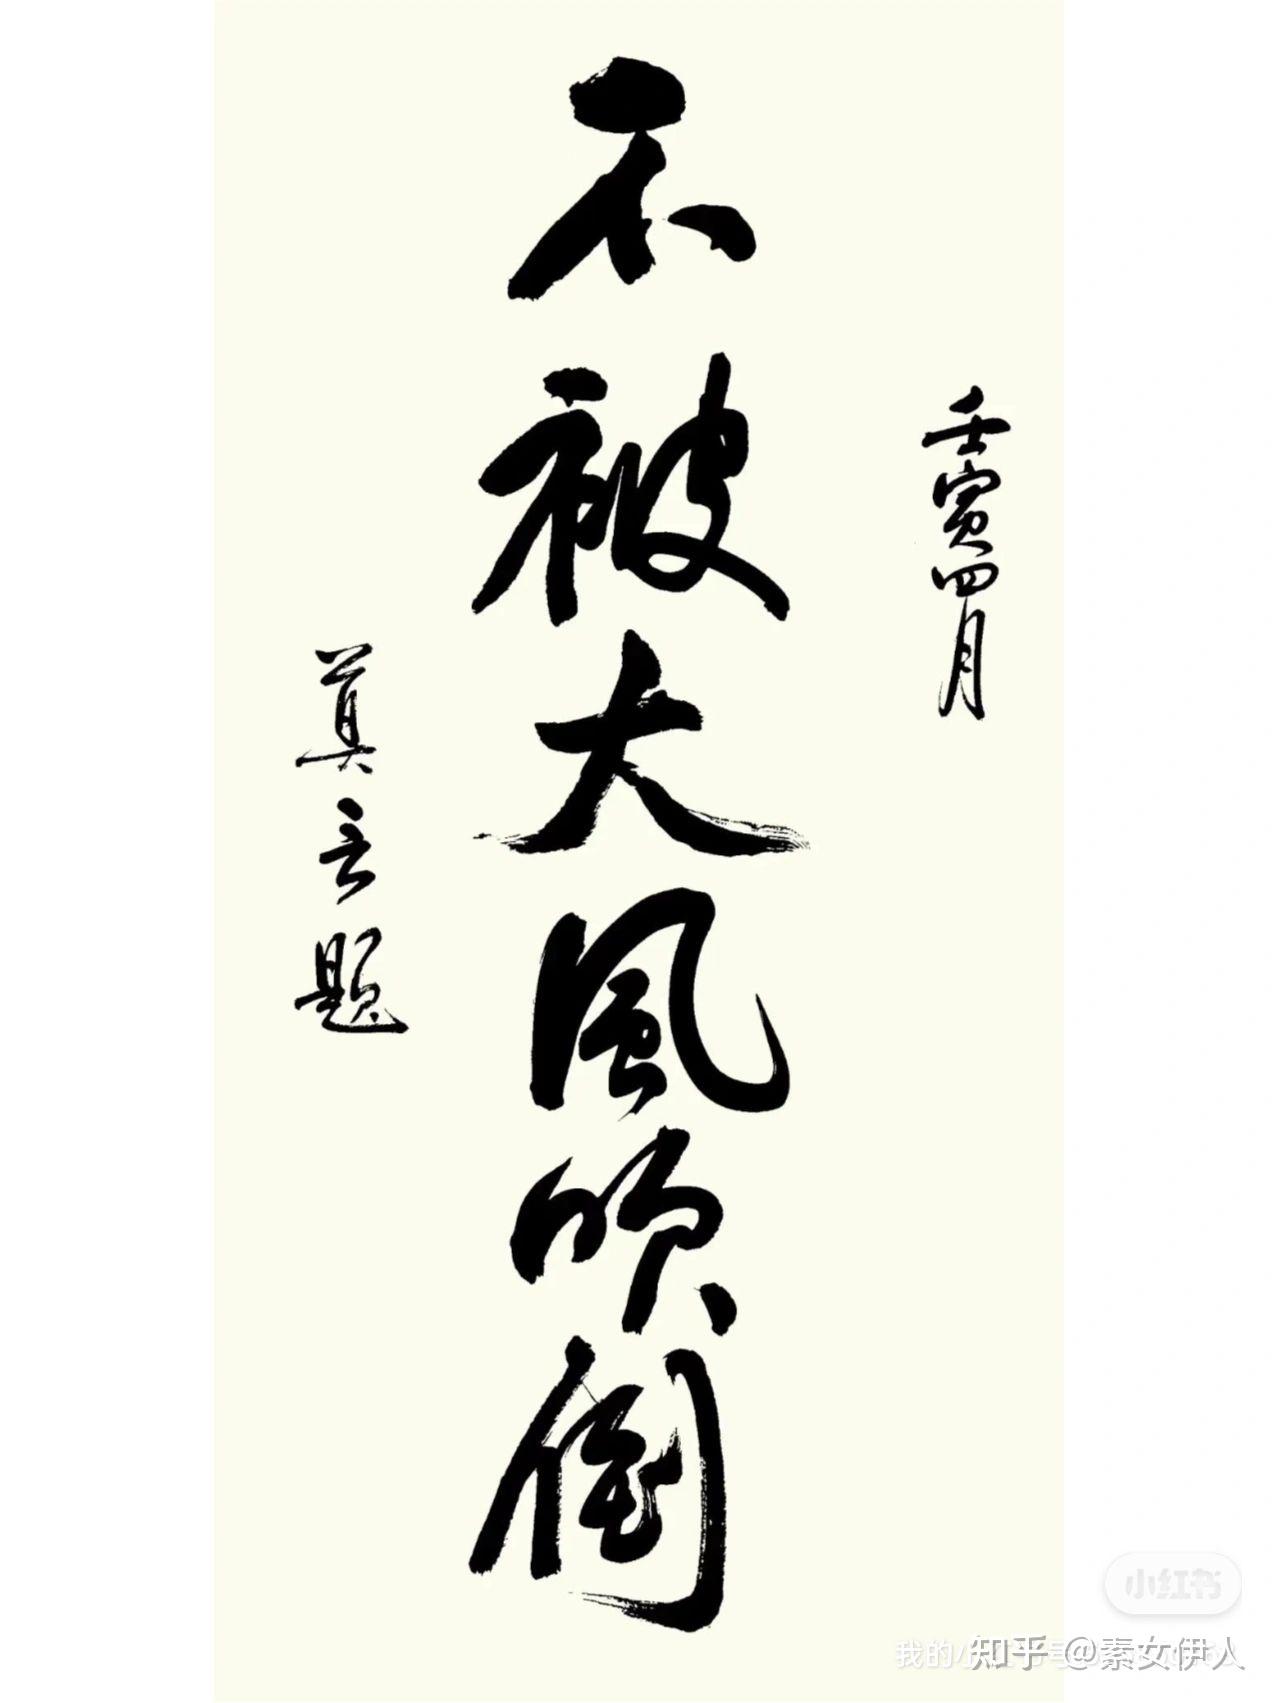 壬寅四月
不被大風吹倒
莫言题
小红书
知乎 @素女伊人